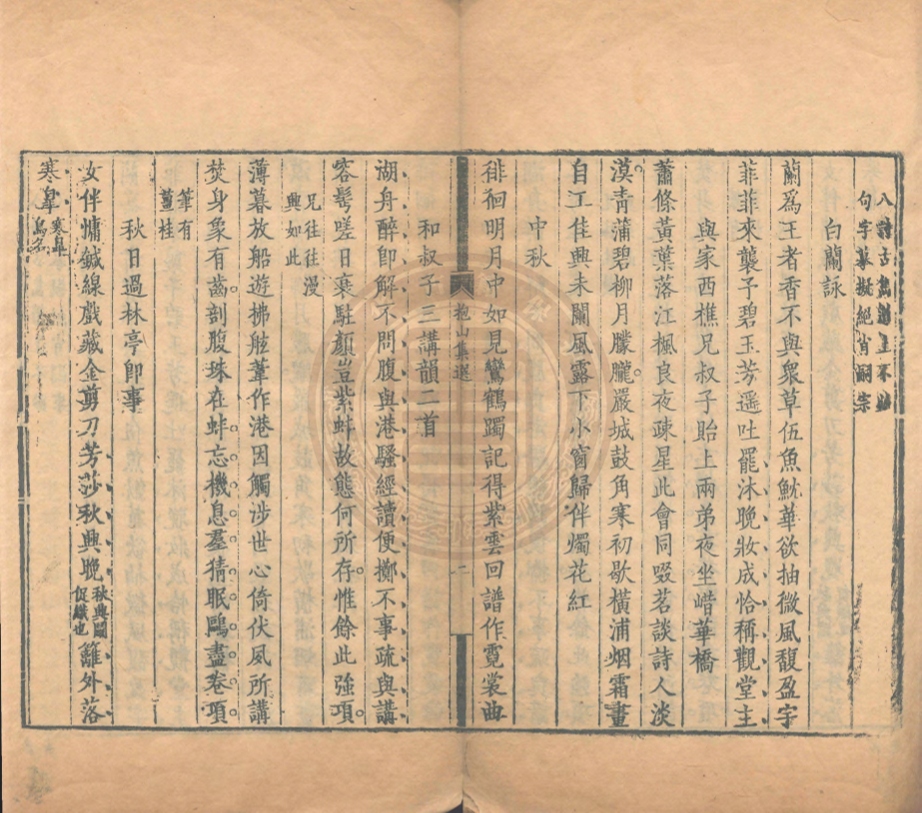 八詩古雋語
句字摹擬絕肖嗣宗
白蘭詠
蘭爲王者香不與衆草伍魚魫華欲抽微風馥盈宇
菲菲來襲予碧玉芳遥吐罷沐晚妝成恰稱觀堂主
與家西樵兄叔子貽上兩弟夜坐㟙華橋
蕭條黃葉落江楓良夜疎星此會同啜茗談詩人淡
漠青蒲碧柳月朦朧嚴城鼓角寒初歇橫浦烟霜畫
自工佳興未闌風露下小窗歸伴燭花紅
中秋
徘徊明月中如見鸞鶴躅記得紫雲回譜作霓裳曲
抱山集選
二
和叔子三講韻二首
湖舟醉卽解不問腹與港騷經讀便擲不事疏與講
容髩嗟日衰駐顏豈紫蚌故態何所存惟餘此強項
兄往往漫
興如此
薄暮放船遊拂舷葦作港因觸涉世心倚伏夙所講
焚身象有齒剖腹珠在蚌忘機息羣猜眠鷗盡卷項
筆有
薑桂
秋日過林亭卽事
女伴慵鍼線戲藏金剪刀芳莎秋興晚
秋興鬬
促織也
籬外落
寒皐
寒皐
鳥名